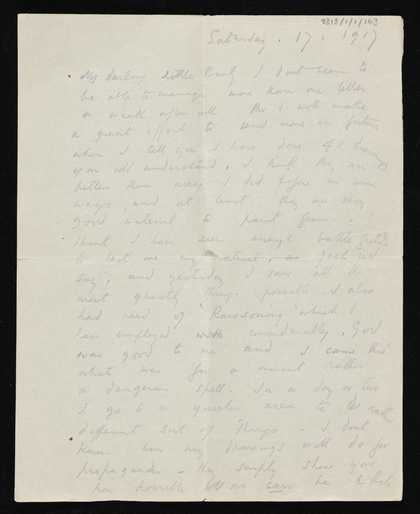 Saturday. 17. 1917
My Darling Little I don't seem to
be able to manage more than one letter
a week after all But I will make
a great effort to send more in future
when I tell you I have done 46 drawings
you will understand. I think they are
better than any I did before in some
ways and at least they are very
good material to paint from. I
think I have seen enough battle fields
to last me my lifetime, as Jack would
say, and yesterday I saw all the
most ghastly things possible I also
had need of 'Ravensoning' which I
employed considerably. God
was good to me and I came thro'
what was for a minute rather
a dangerous spell. In a day or two
I go to a quieter area to do
different sort of things - I don't
know how my drawings will do for
propaganda - they simply show you
how horrible war can be